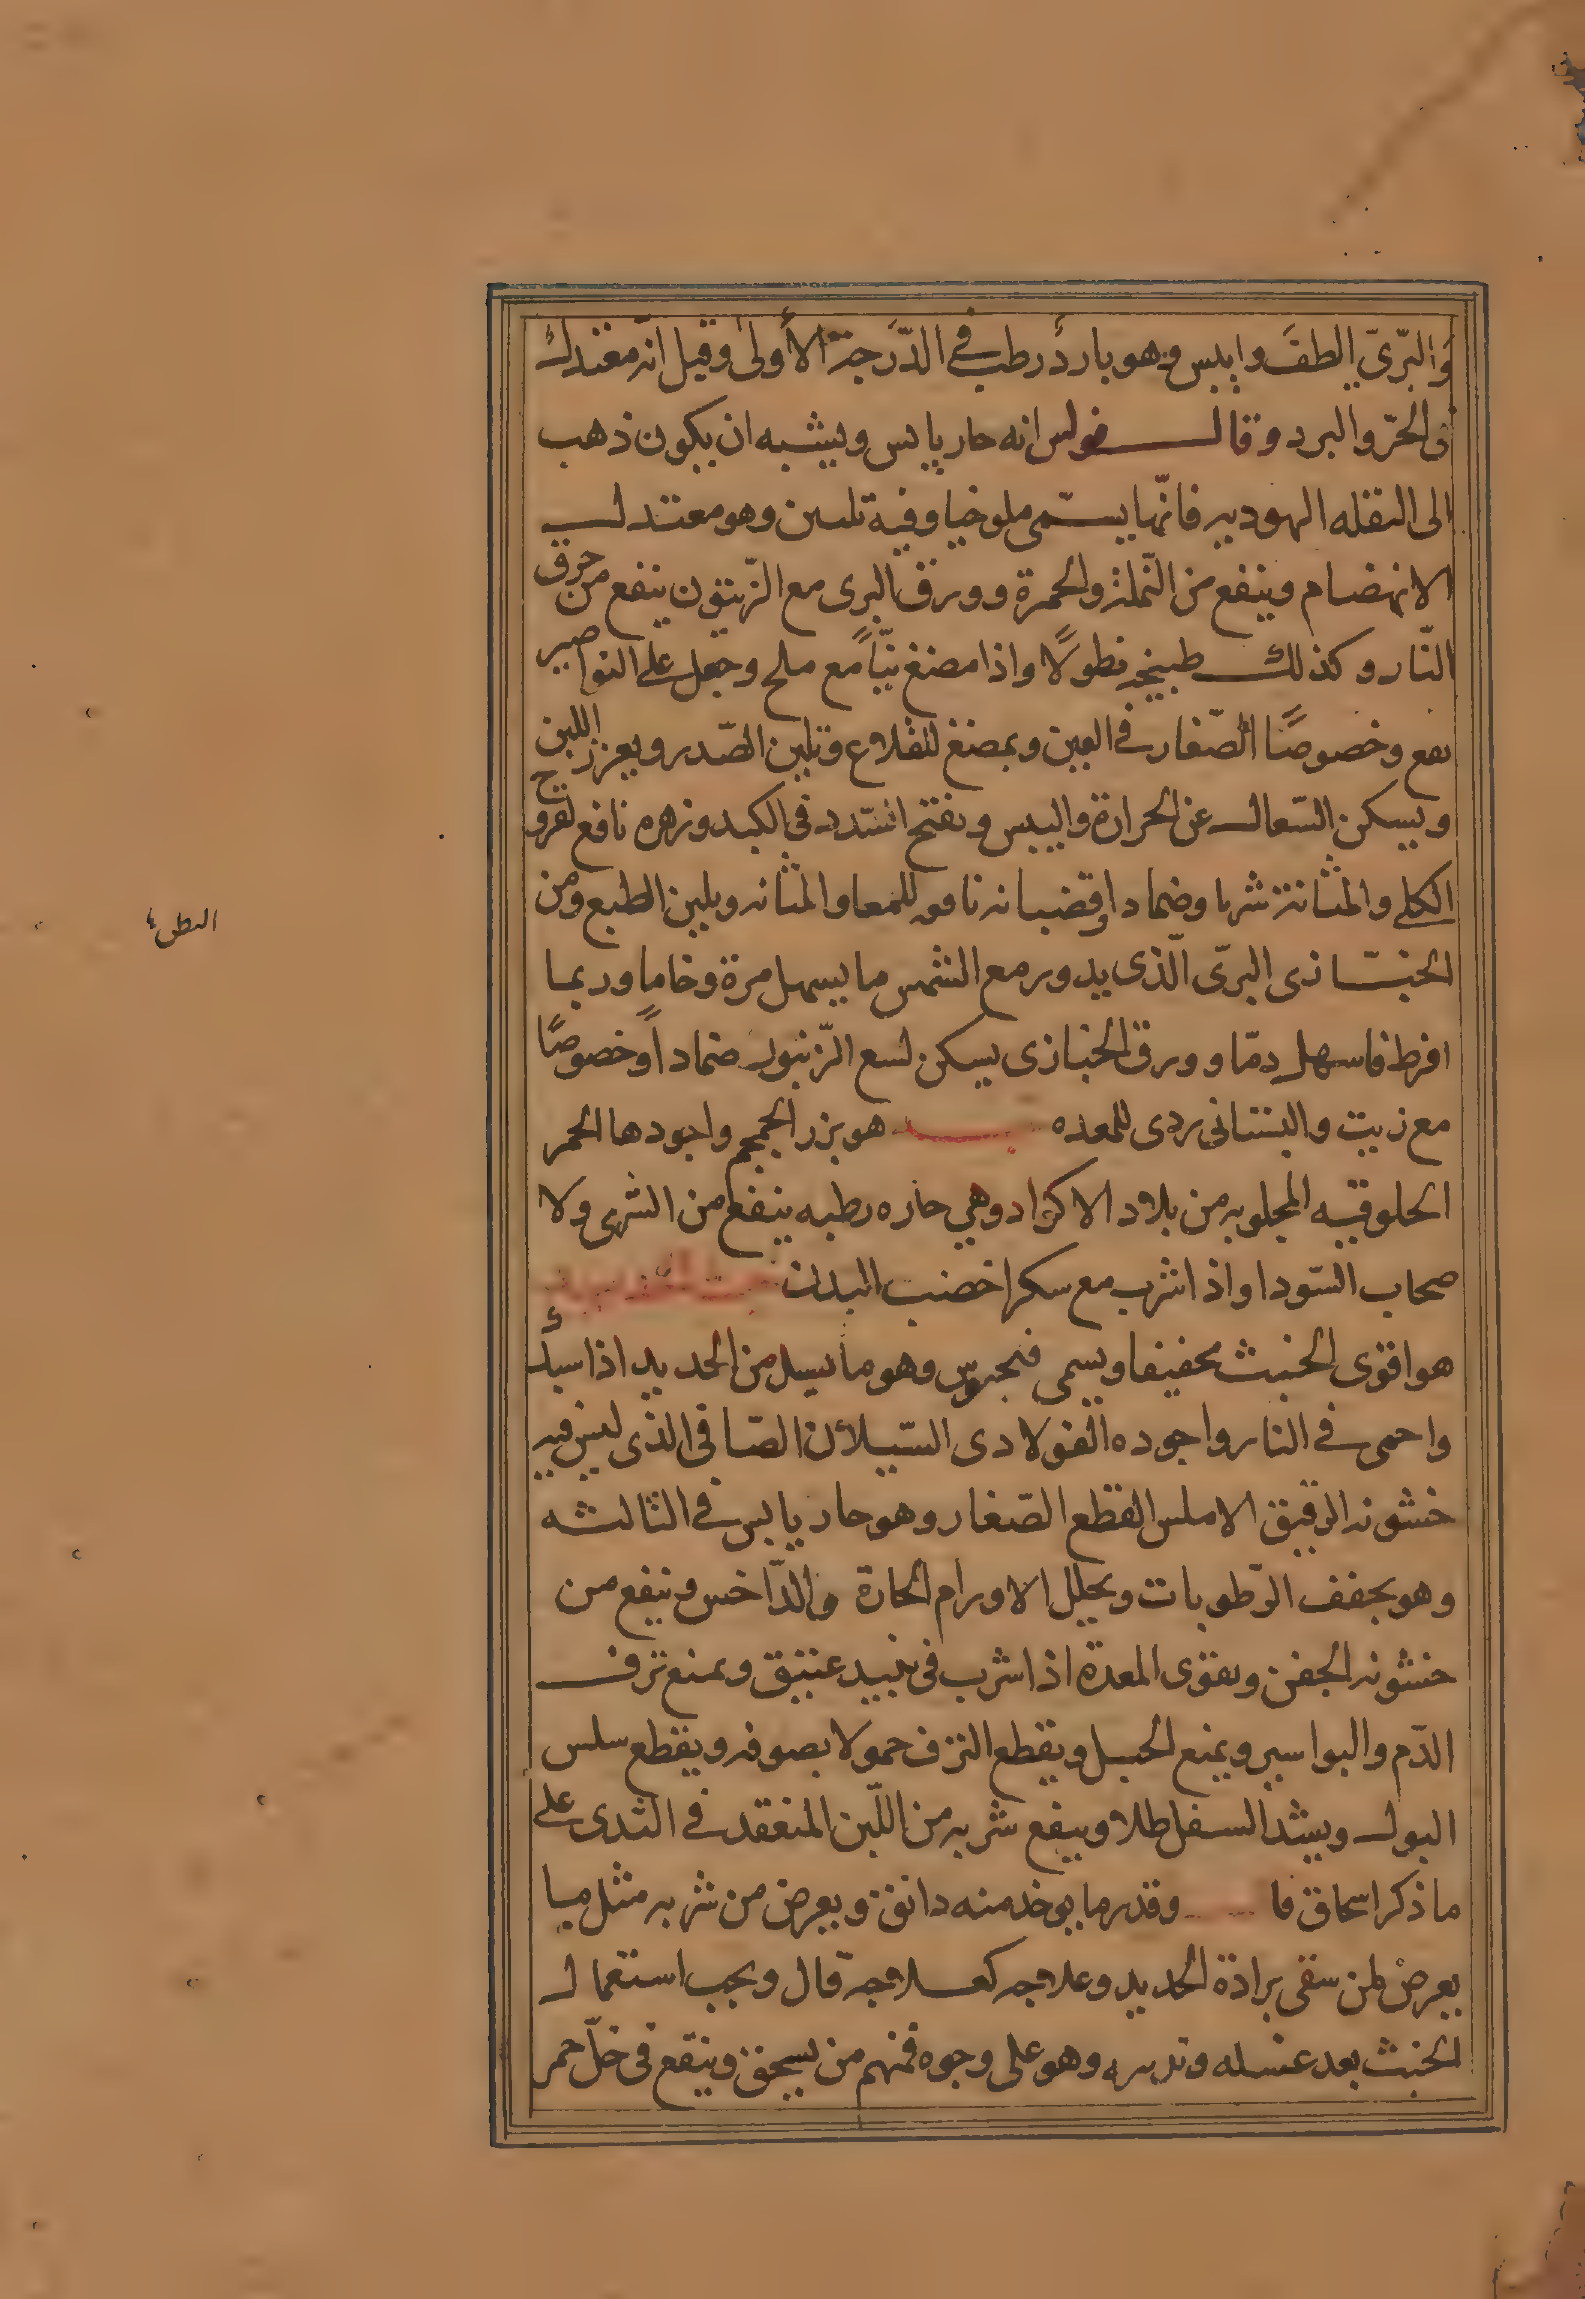 والبرّي الطف وايبس وهو بارد رطب في الدّرجة الأولى وقيل انه معتدل
في الحرّ والبرد وقال فولس انه حار يابس ويشبه ان يكون ذهب
الى البقله اليهوديه فانّها يسمّى ملوخيا وفيه تلين وهو معتدل
الانهضام وينفع من النّملة والحمرة وورق البرى مع الزّيتون ينفع من حرق
النّار وكذلك طبيخه نطولًا واذا مضغ نيّاً مع ملح وجعل على النواصير
نفع وخصوصًا الصّغار في العين ويمضغ للقلاع ويلين الصّدر ويغزر اللبن
ويسكن السّعال عن الحرارة واليبس ويفتح السّدد في الكبد وزهره نافع لقروح
الكلى والمثانة شربا وضمادا وقضبانه نافعه للمعا والمثانه ويلين الطبع ومن
الخبّازى البرّى الّذى يدور مع الشمس ما يسهل مرة وخاما وربما
افرط فاسهل دمّا وورق الخبازى يسكن لسع الزّنبور ضماداً وخصوصًا
مع زيت والبستانى ردى للمعده هو بزر الخمخم واجودها الحمر
الحلوقيه المجلوبه من بلاد الاكراد وهي حاره رطبه ينفع من الشرى ولا
صحاب السّودا واذا شرب مع سكر اخصب البدن
هو اقوى الخبث تجفيفا ويسمى وهو ما يسيل من الحديد اذا سبك
واحمى في النار واجوده الفولادى السّيلان الصّافى الذى ليس فيه
خشونه الرقيق الاملس القطع الصّغار وهو حار يابس في الثالثه
وهو يجفف الرّطوبات ويحلل الاورام الحارة والدّاخس وينفع من
خشونه الجفن ويقوى المعدة اذا شرب في نبيذ عتيق ويمنع نزف
الدّم والبواسير ويمنع الحبل ويقطع النزف حمولا بصوفه ويقطع سلس
البول ويشد السفل طلا وينفع شربه من اللّبن المنعقد في الثدى على
ما ذكر اسحاق قا وقدر ما يوخذ منه دانق ويعرض من شربه مثل ما
يعرض لمن سقى برادة الحديد وعلاجه كعلاجه قال ويجب استعمال
الخبث بعد غسله وتدبيره وهو على وجوه فمنهم من يسحق وينقع فى خلّ خمر
البطن